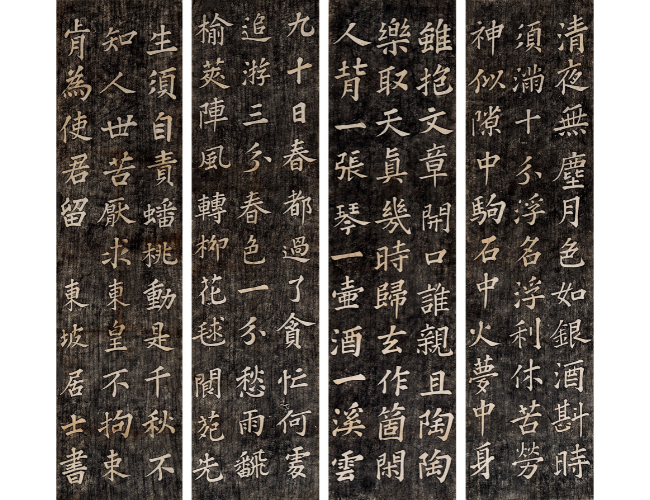 清夜無塵月色如銀酒斟時
須滿十分浮名浮利休苦勞
神似隙中駒石中火夢中身
雖抱文章開口誰親且陶陶
樂取天眞幾時歸去作箇閑
人背一張琴一壷酒一溪雲
九十日春都過了貪忙何處
追游三分春色一分愁雨飜
榆莢陣風轉柳花毬閬苑先
生須自責蟠桃動是千秋不
知人世苦厭求東皇不拘束
肯為使君留 東坡居士書